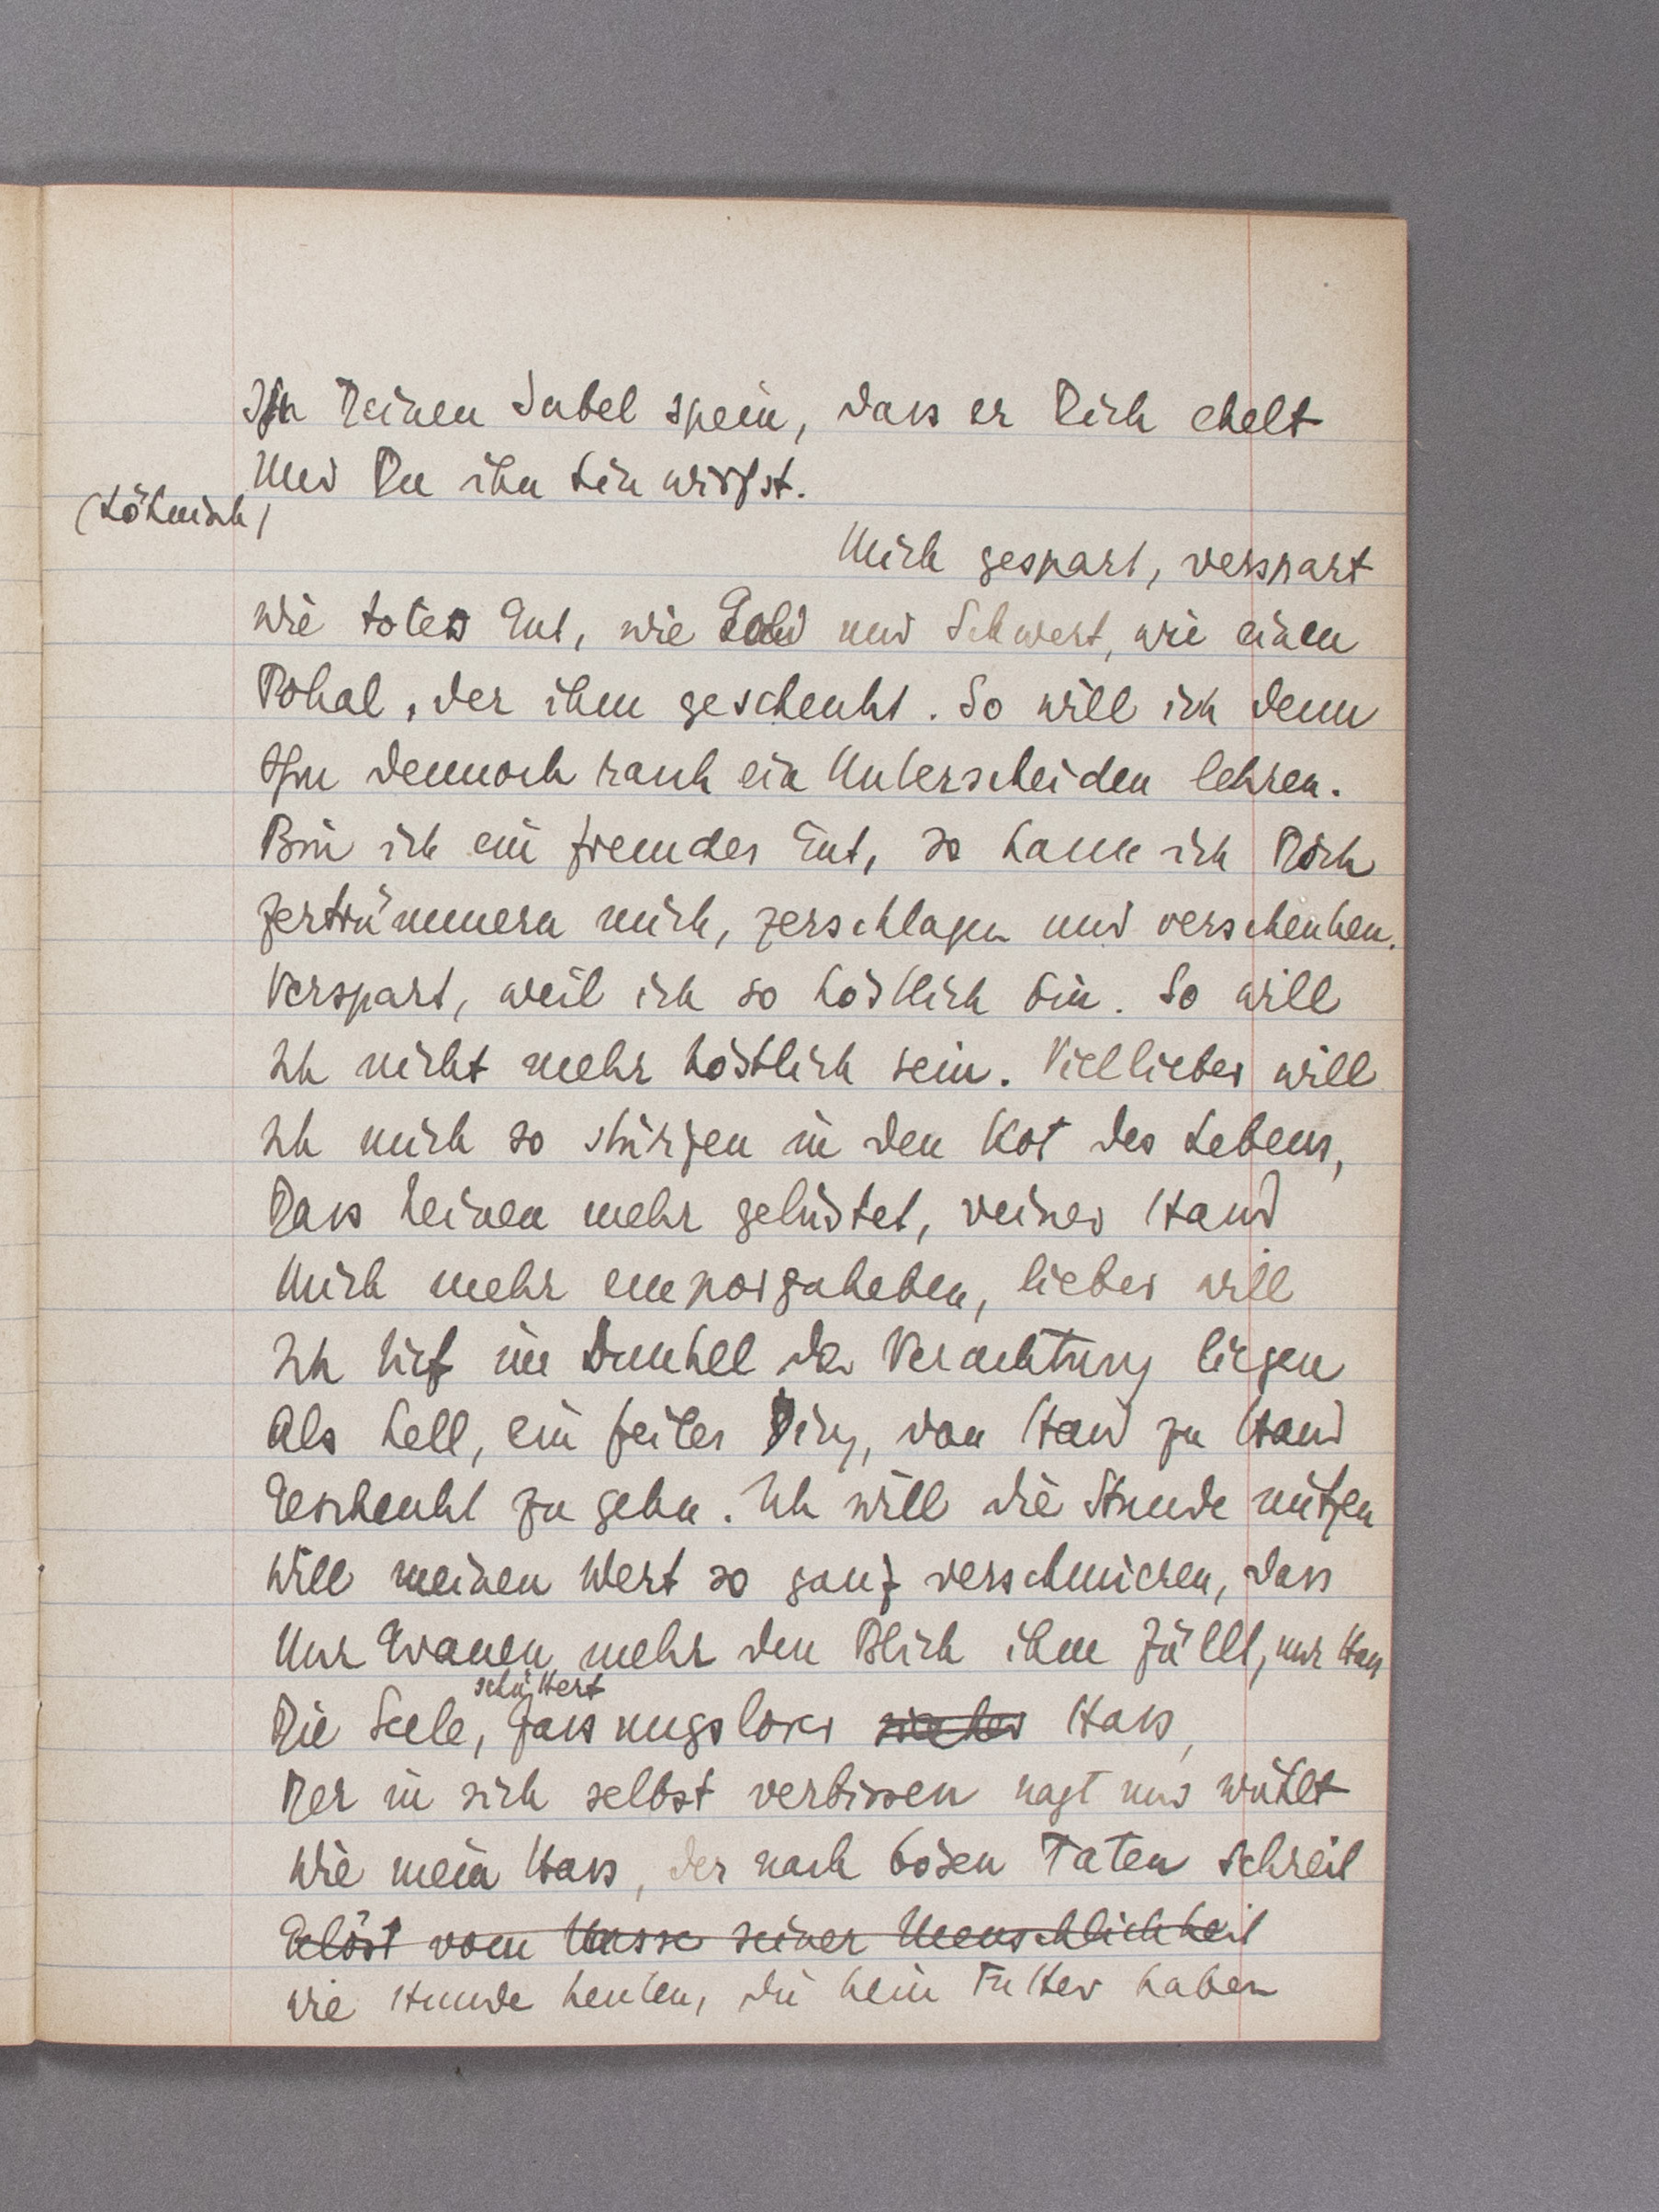 In Deinen Sabel spein, dass er Dich ekelt
Und Du ihn hin wirfst.
(höhnisch)
Mich gespart, verspart
wie totes Gut, wie Gold und Schwert, wie einen
Pokal, der ihm geschenkt. So will ich denn
Ihn dennoch rauh ein Unterscheiden lehren.
Bin ich ein fremdes Gut, so kann ich Doch
zertrümmern mich, zerschlagen und verschenken.
Verspart, weil ich so köstlich bin. So will
Ich nicht mehr köstlich sein. Viellieber will
Ich mich so stürzen in den Kot des Lebens,
Dass keinen mehr gelüstet, reiner Hand
Mich mehr emporzuheben, lieber will
Ich tief im Dunkel der Verachtung liegen
Als hell, ein feiles Ding, von Hand zu Hand
Geschenkt zu gehn. Ich will die Stunde nützen
Will meinen Wert so ganz verschmieren, dass
Nur Grauen mehr den Blick ihm füllt, nur Hass
schüttert
Die Seele, fassungsloser Hass,
Der in sich selbst verbissen nagt und wühlt
Wie mein Hass, der nach bösen Taten schreit
Gelöst vom Masse seiner Menschlichkeit
Wie Hunde heulen, die kein Futter haben